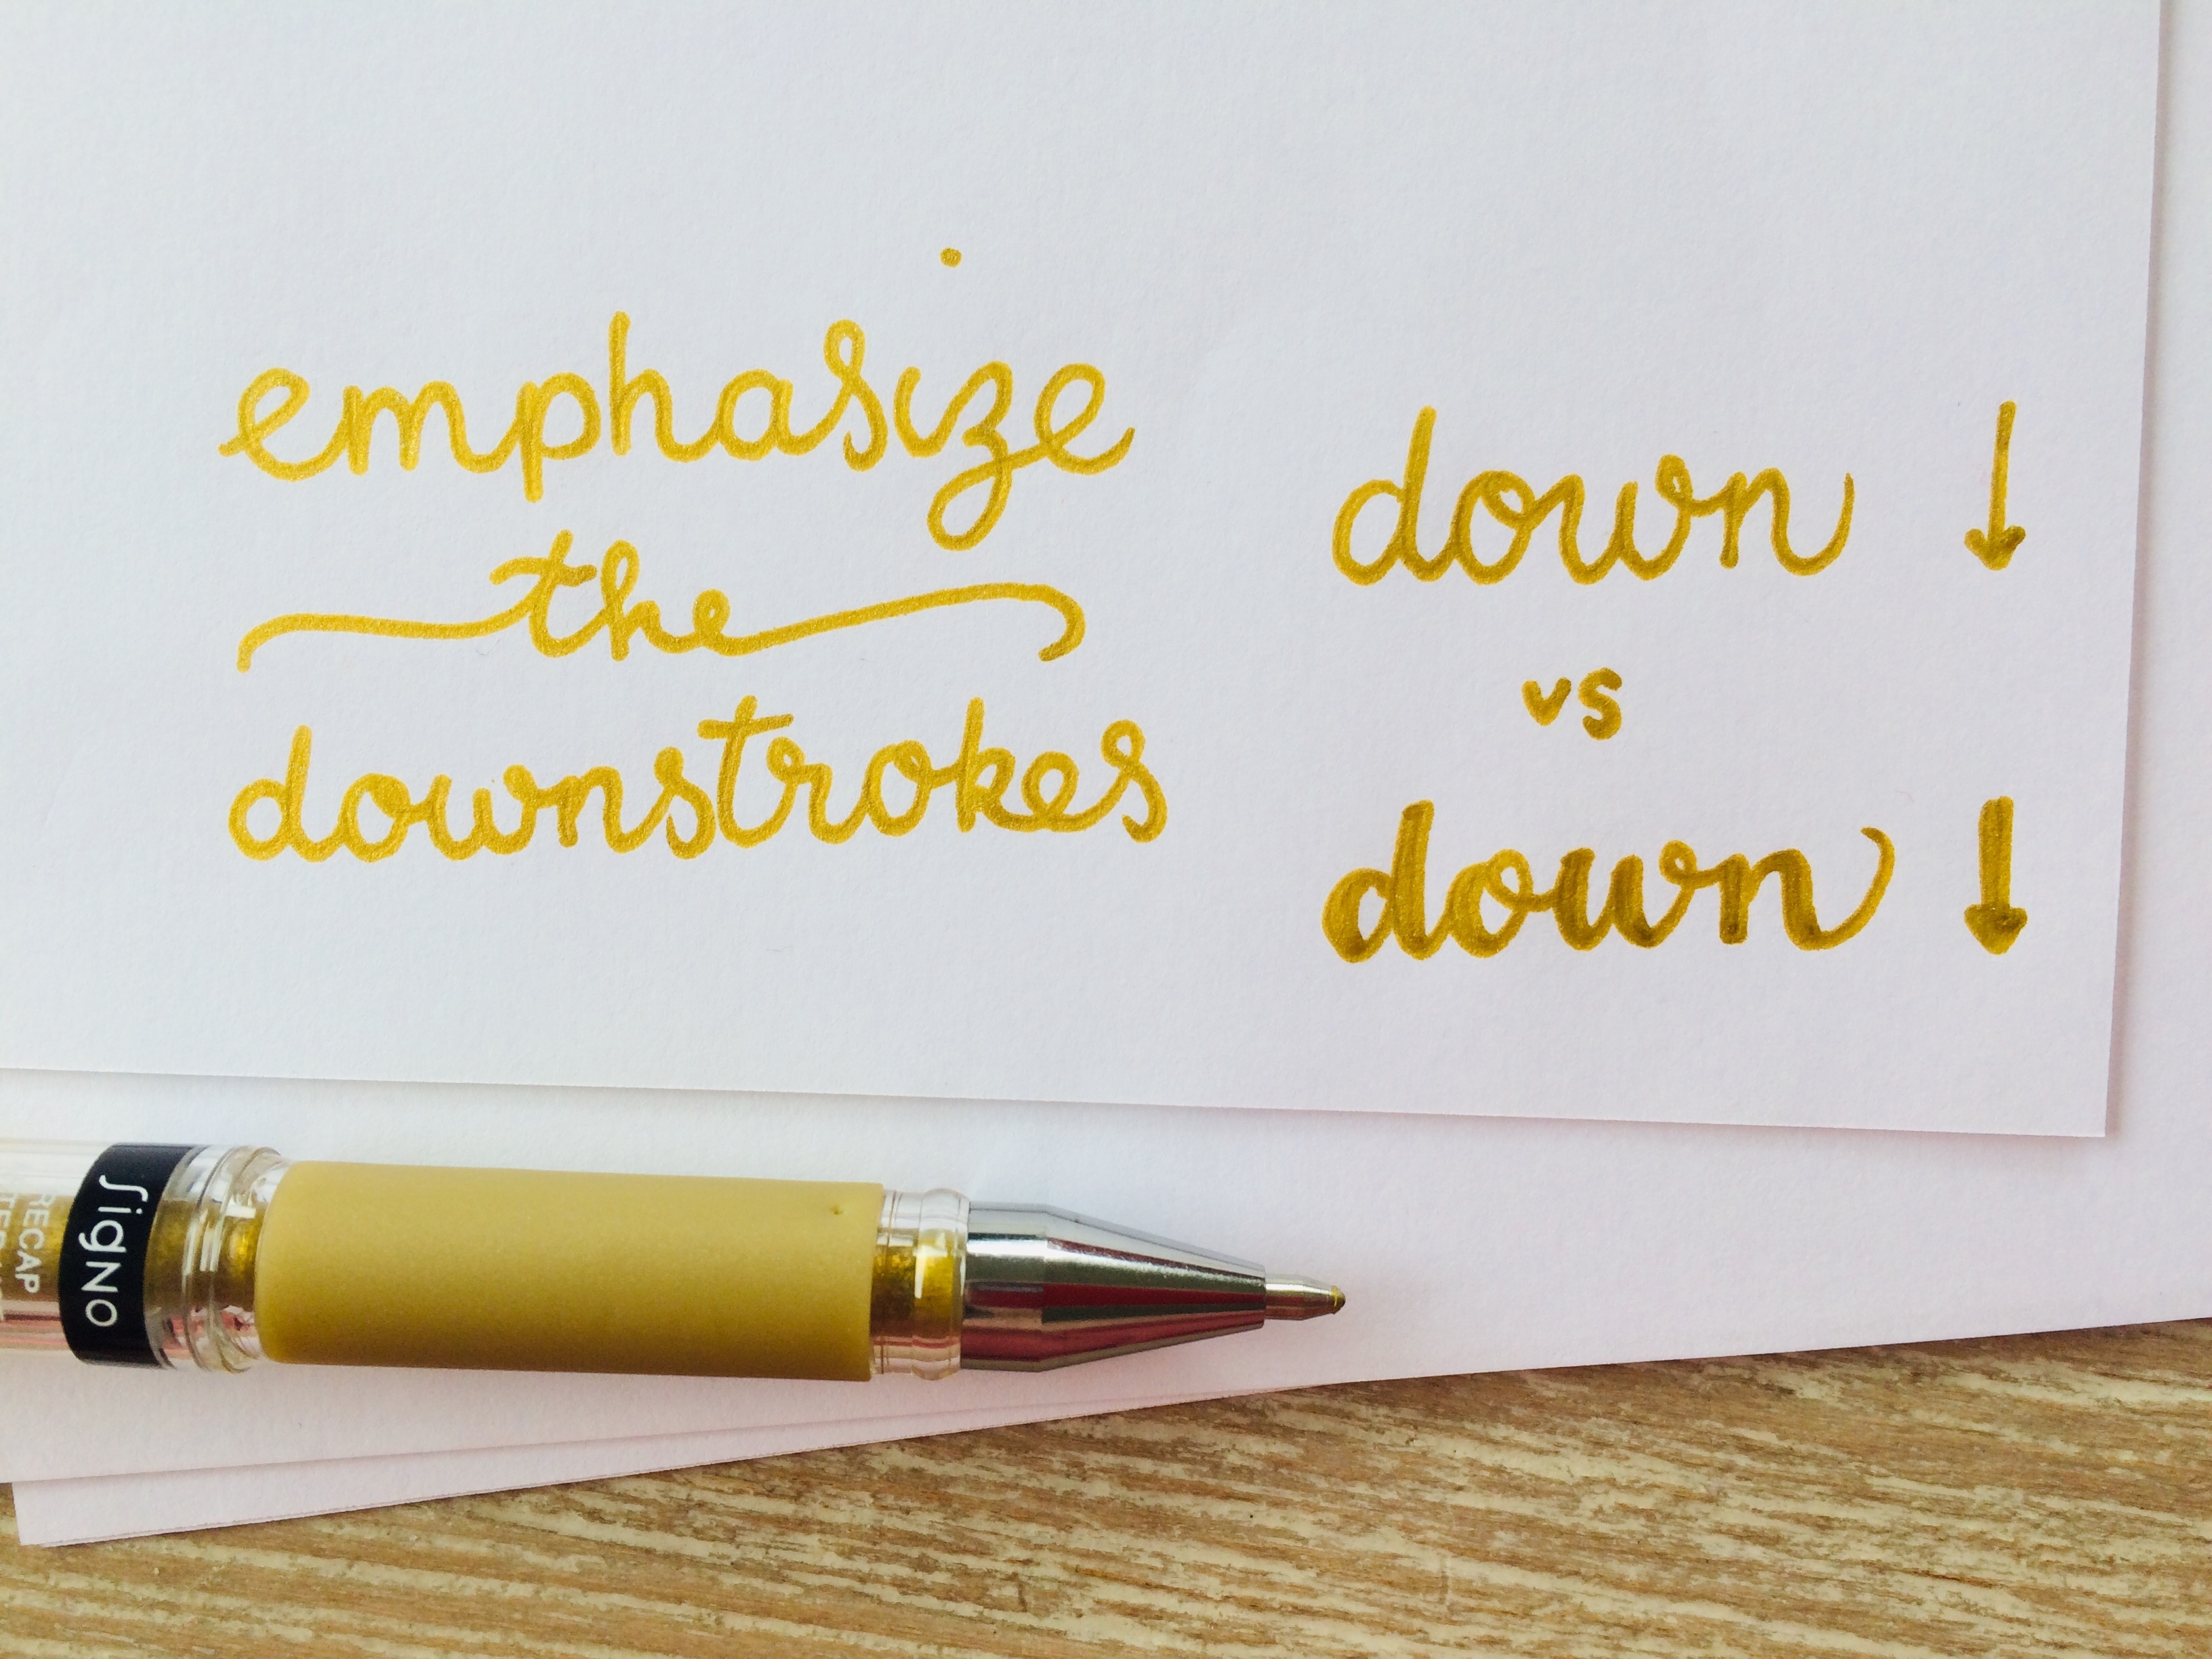 emphasize
the
downstrokes
down ↓
vs
down ↓
SigNO
RECAP